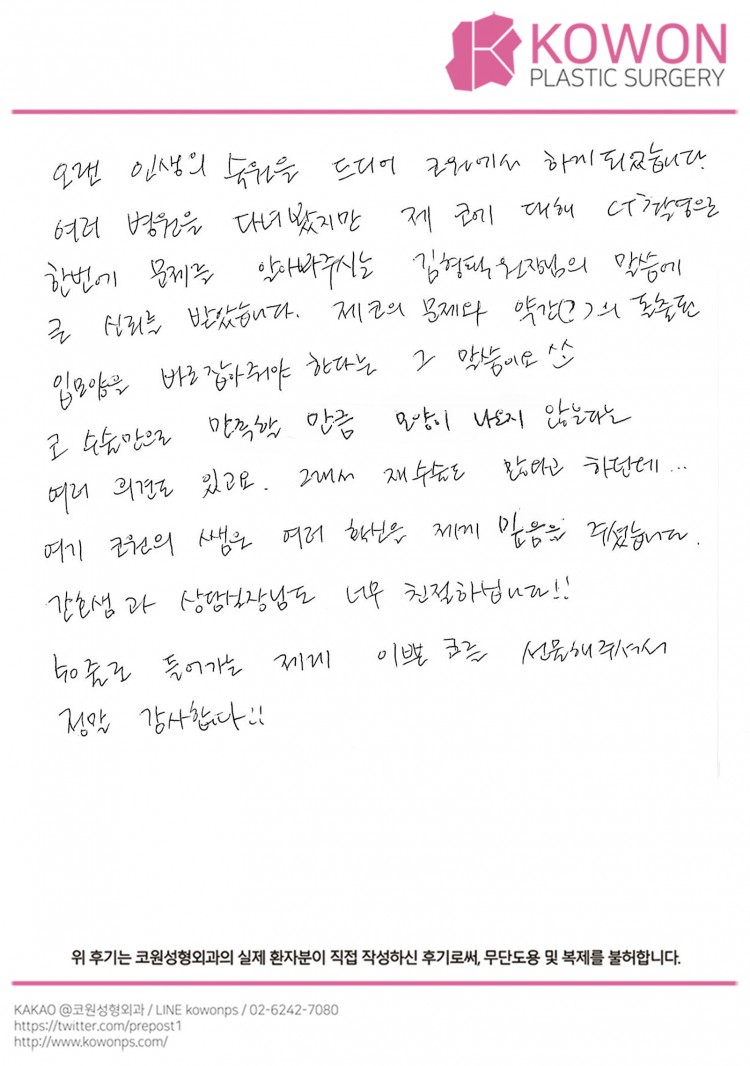 KOWON
PLASTIC SURGERY
오랜 인생의 숙원을 드디어 코원에서 하게 되었습니다.
여러 병원을 다녀봤지만 제 코에 대해 CT촬영으로
한번에 문제를 알아봐주시는 김형택원장님의 말씀에
큰 신뢰를 받았습니다. 제 코의 문제와 약간(?)의 돌출된
입모양을 바로 잡아줘야 한다는 그 말씀이요 ^^
코 수술만으로 만족할 만큼 모양이 나오지 않는다는
여러 의견도 있고요. 그래서 재수술도 많다고 하던데...
여기 코원의 쌤은 여러 확신을 제게 믿음을 주셨습니다.
간호샘과 상담실장님도 너무 친절하십니다!!
40줄로 들어가는 제게 이쁜 코를 선물해주셔서
정말 감사합니다!!
위 후기는 코원성형외과의 실제 환자분이 직접 작성하신 후기로써, 무단도용 및 복제를 불허합니다.
KAKAO @코원성형외과 / LINE kowonps / 02-6242-7080
https://twitter.com/prepost1
http://www.kowonps.com/